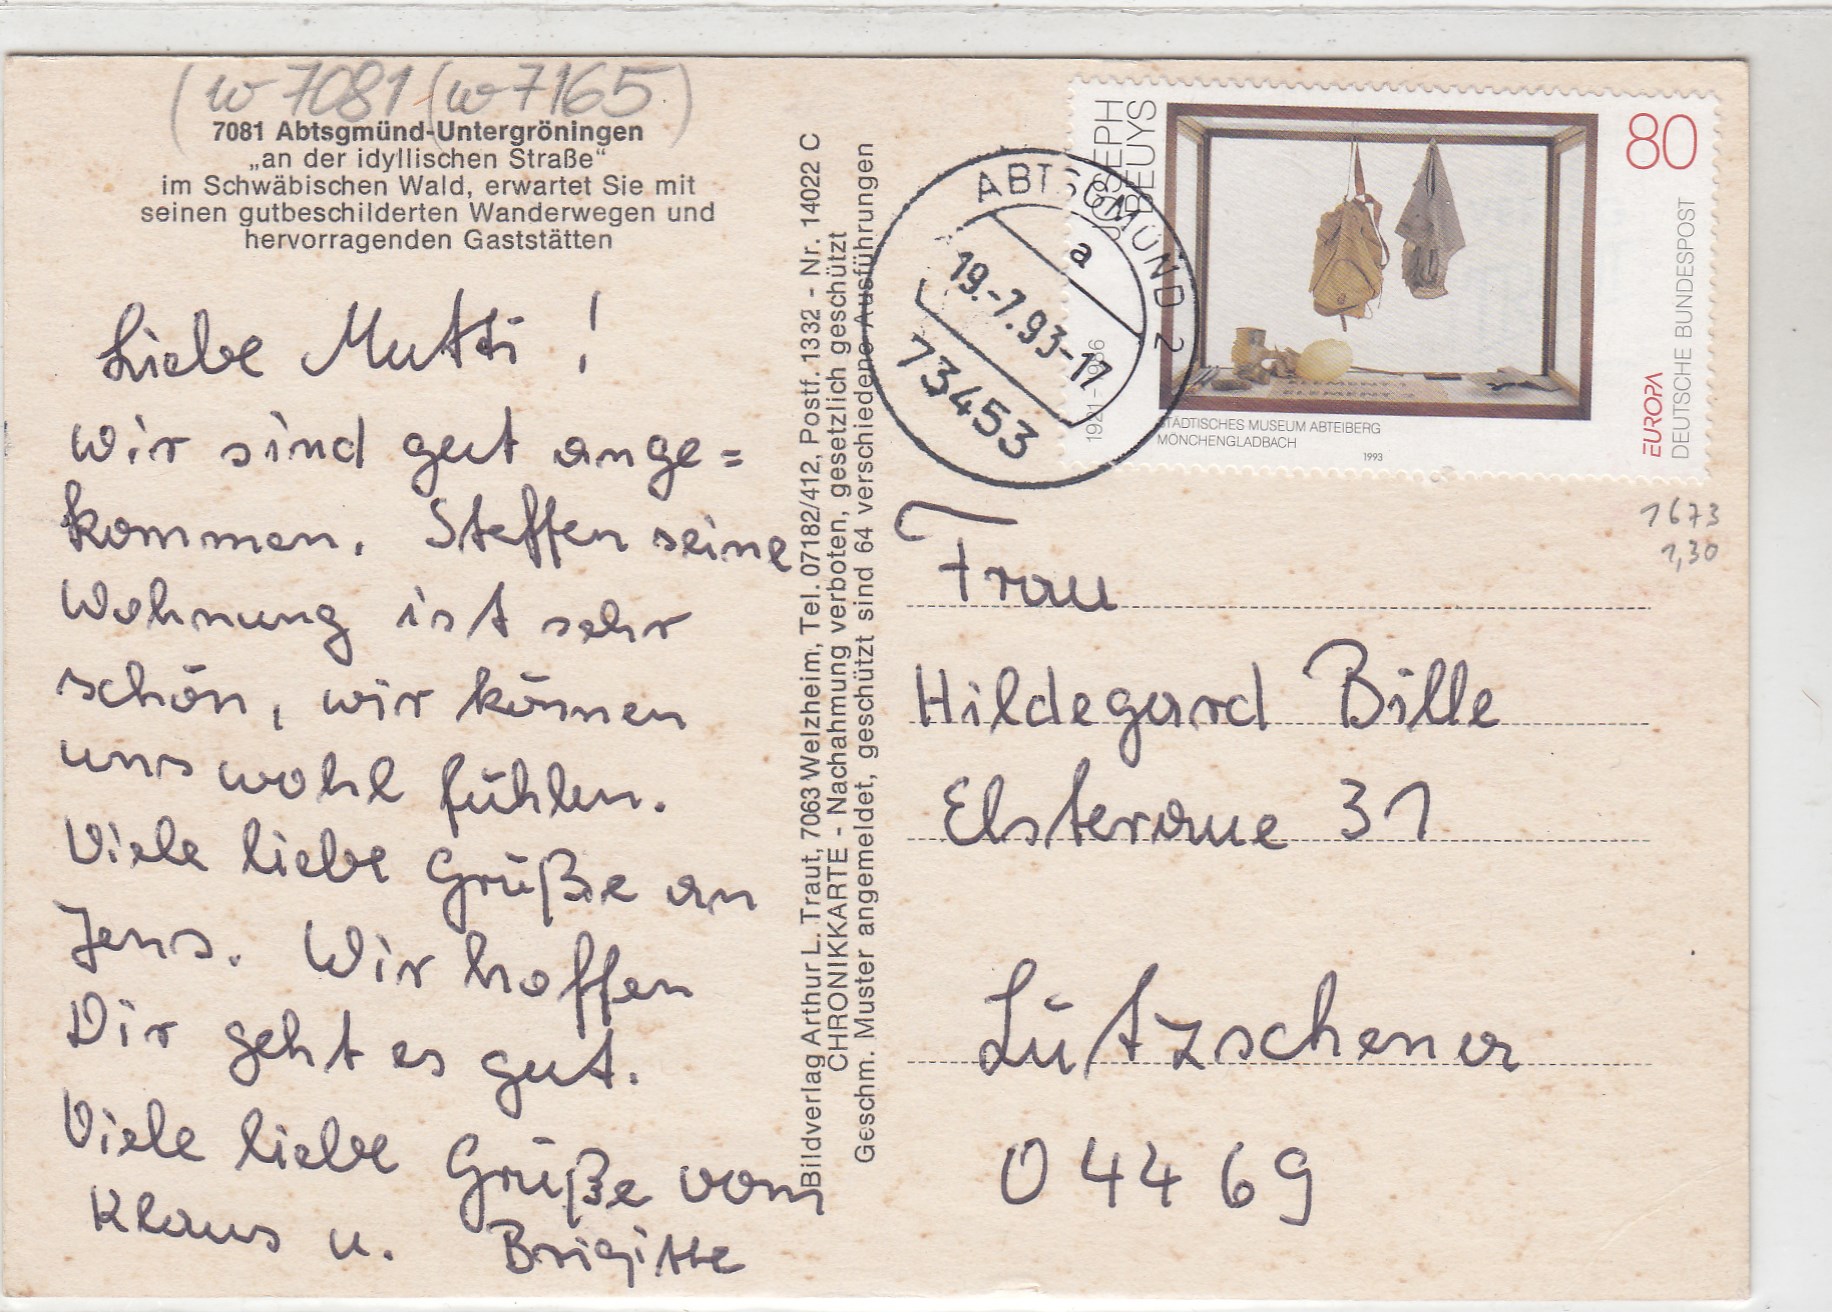 (w 7081 (w 7165)
7081 Abtsgmünd-Untergröningen
„an der idyllischen Straße“
im Schwäbischen Wald, erwartet Sie mit
seinen gutbeschilderten Wanderwegen und
hervorragenden Gaststätten
Liebe Mutti !
Wir sind gut ange=
kommen. Steffen seine
Wohnung ist sehr
schön, wir können
uns wohl fühlen.
Viele liebe Grüße an
Jens. Wir hoffen
Dir geht es gut.
Viele liebe Grüße von
Klaus u. Brigitte
Bildverlag Arthur L. Traut, 7063 Welzheim, Tel. 07182/412, Postf. 1332 - Nr. 14022 C
CHRONIKKARTE - Nachahmung verboten, gesetzlich geschützt
Geschm. Muster angemeldet, geschützt sind 64 verschiedene Ausführungen
ABTSGMÜND 2
a
19.-7.93-17
73453
JOSEPH
BEUYS
1921 - 1986
80
STÄDTISCHES MUSEUM ABTEIBERG
MÖNCHENGLADBACH
1993
EUROPA
DEUTSCHE BUNDESPOST
1673
1,30
Frau
Hildegard Bille
Elsteraue 31
Lützschena
04469